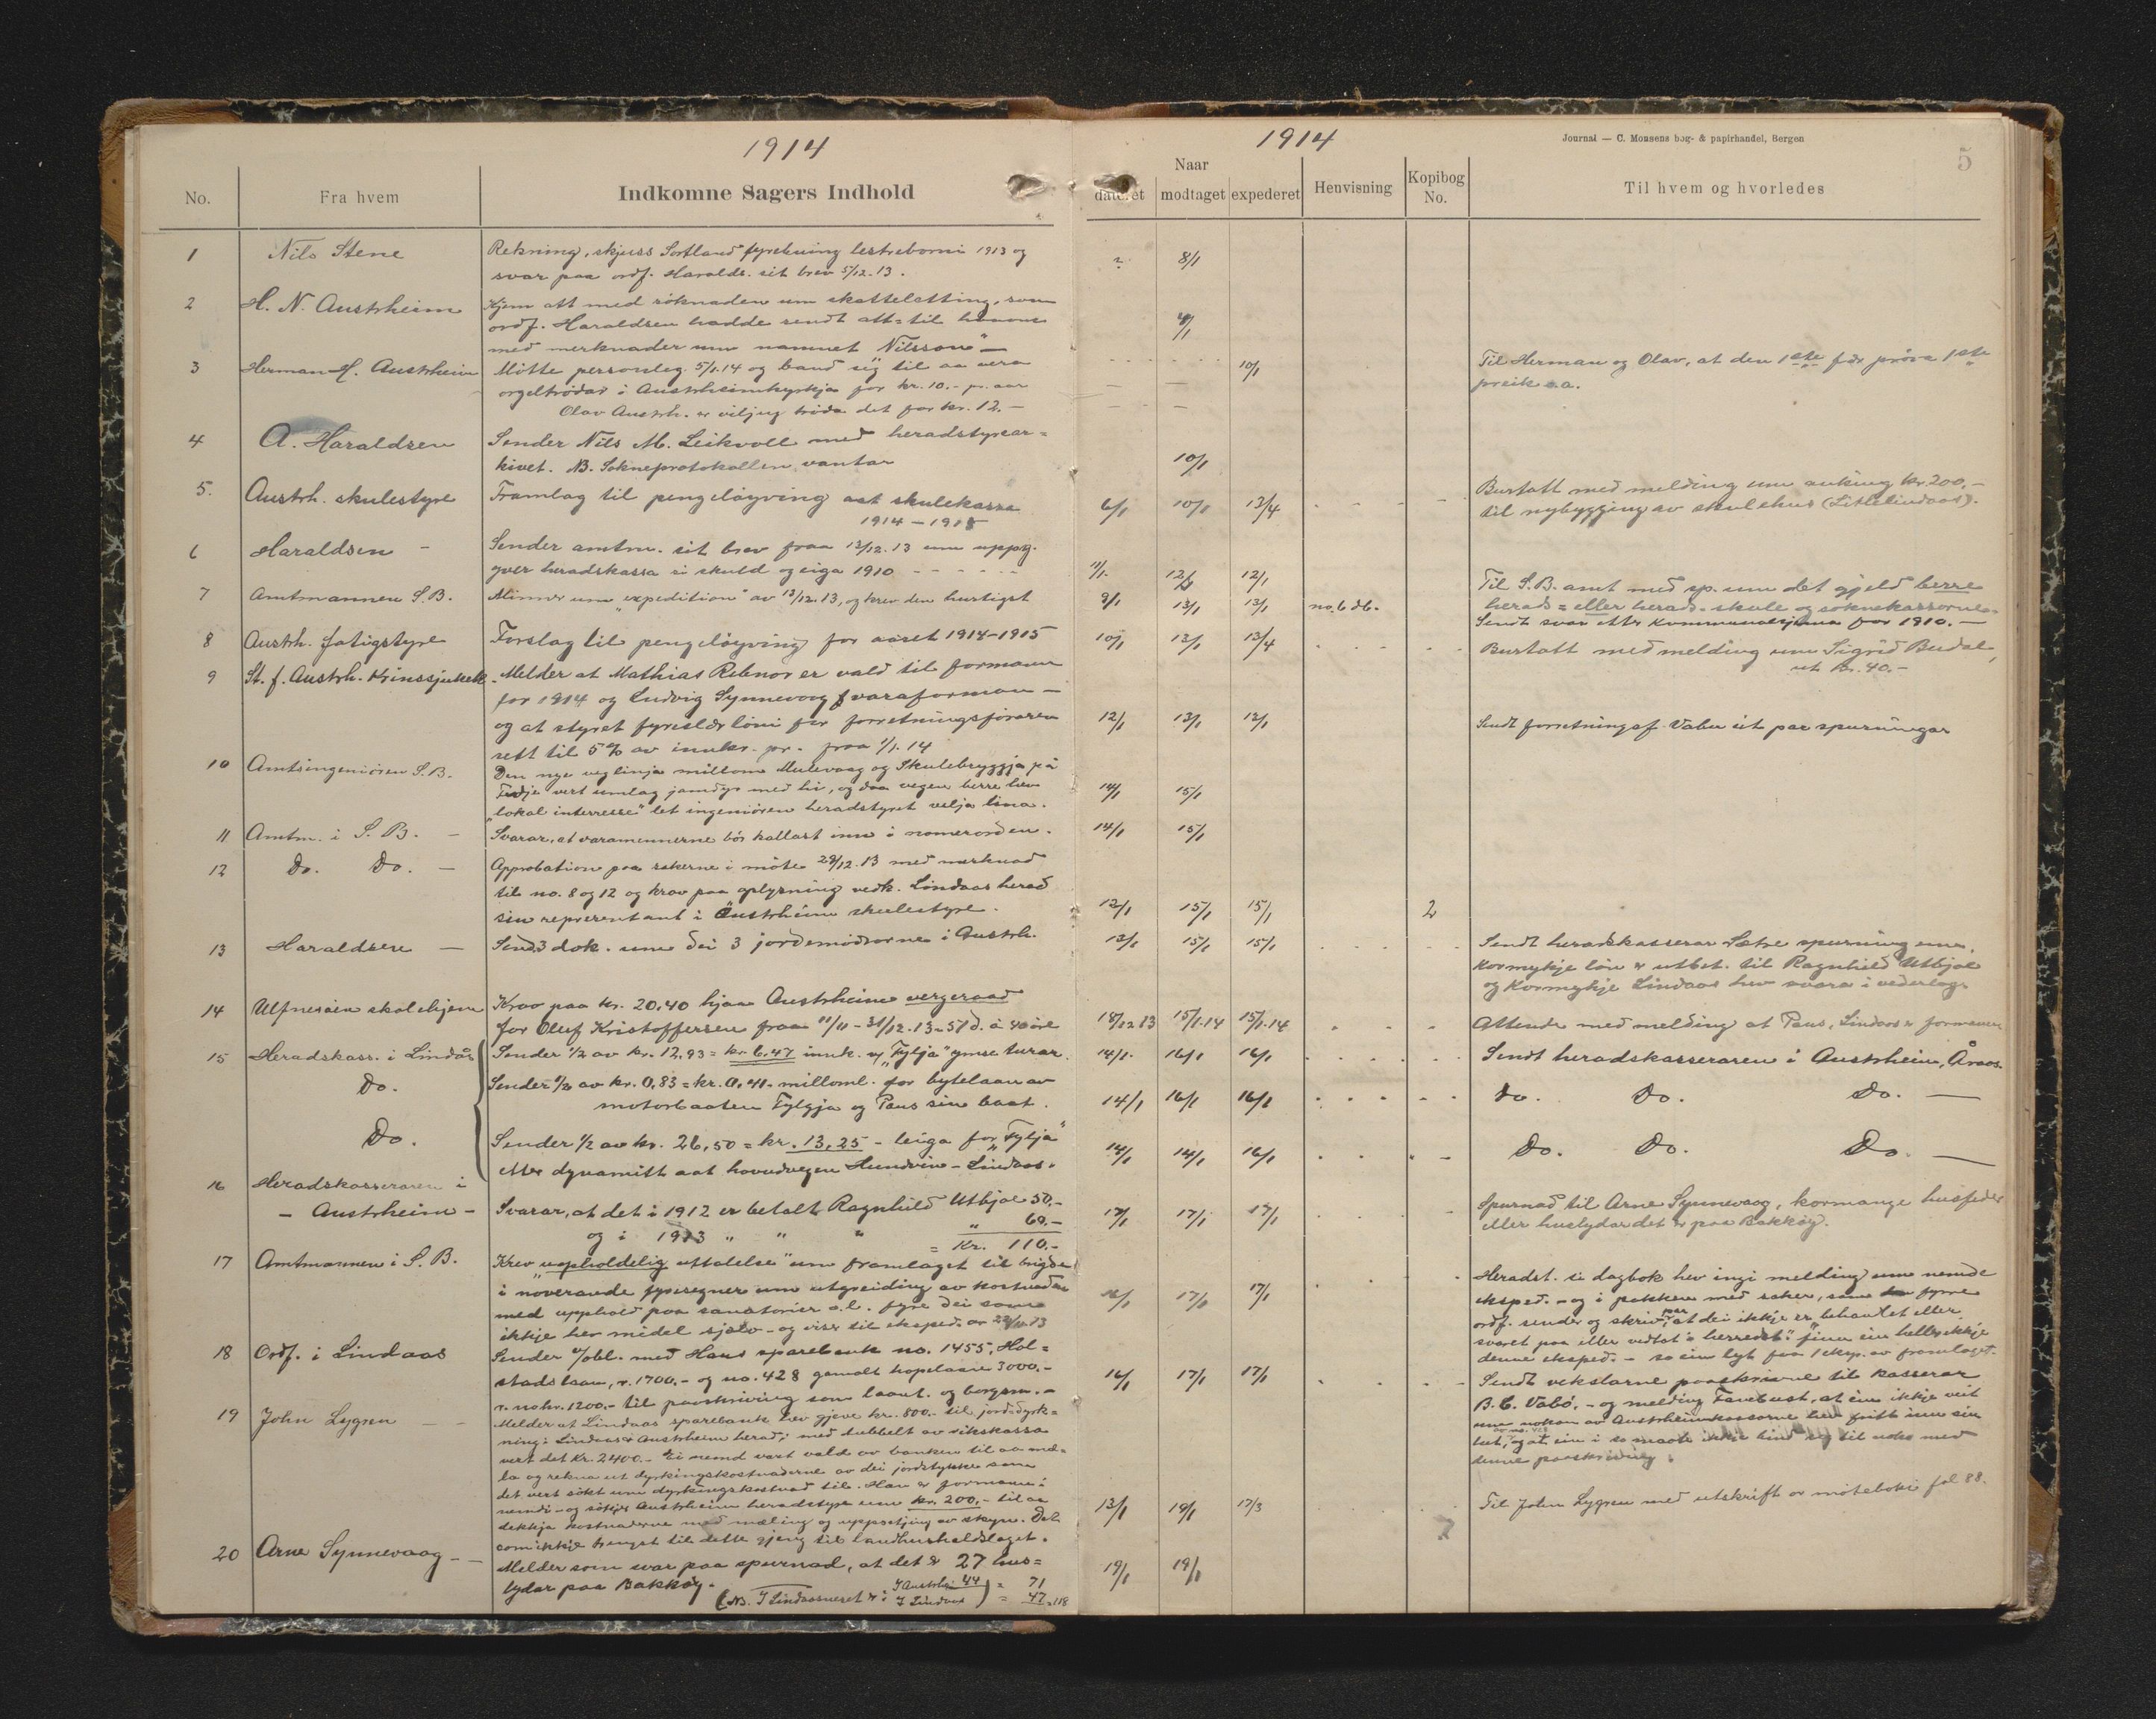 1914
No.
Fra hvem
Indkomne Sagers Indhold
1 Nils Stene Rekning, skjuss Sortland fyrelsning lestreborni 1913 og
svar paa ordf. Haralds. sit brev 5/12.13.
2 H. N. Austrheim Kjem att med söknaden um skatteletting, som
ordf. Haraldsen hadde sendt att til honom
med merknader um namnet "Nilsson" —
3 Herman H. Austrheim Mötte personleg 5/1.14 og baud sig til aa vera
orgeltrödar i Austrheimkyrkja for kr. 10.- pr. aar
Olav Austrh. er viljug tröda det for kr. 12.-
4 A. Haraldsen Sender Nils M. Leikvoll med heradstyrear=
kivet. NB. Sokneprotokollen vantar
5. Austrh. skulestyre Framlag til pengelöyving aat skulekassa
1914 - 1915
6 Haraldsen - Sender amtm. sit brev fraa 13/12.13 um uppg.
yver heradskassa si skuld og eiga 1910 - - - - - -
7 Amtmannen S.B. Minner um "expedition" av 13/12.13, og krev den hurtigst
8 Austrh. fatigstyre Forslag til pengelöyving for aaret 1914-1915
9 St. f. Austrh. Krinssjukek. Melder at Mathias Rebnor er vald til formann
for 1914 og Ludvig Synnevaag varaforman —
og at styret fyreslær löni for forretningsföraren
sett til 5% av innkr. pr. fraa 1/1.14
10 Amtsingeniören S.B. Den nye veglinja millom Mulevaag og Skulebryggja på
Fedje vert umlag jamdyr med hi, og daa vegen berre hev
"lokal interresse" let ingeniören heradstyret velja lina.
11 Amtm. i S. B. - Svarar, at varamennerne bör kallast inn i nomerorden.
12 Do. Do. - Approbation paa sakerne i möte 29/12.13 med merknad
til no. 8 og 12 og krav paa oplysning vedk. Lindaas herad
sin representant i Austrheim skulestyre.
13 Haraldsen - Send 3 dok. um dei 3 jordemödrorne i Austrh.
14 Ulfnesöen skolehjem Krav paa kr. 20,40 hjaa Austrheim vergeraad
for Oluf Kristoffersen fraa 11/11 - 31/12.13 = 51 d. á 40 öre
15 Heradskass. i Lindås Sender 1/2 av kr. 12,93 = kr. 6.47 innk. "Fylja" ymse turar.
Do. Sender 1/2 av kr. 0,83 = kr. 0,41. milloml. for bytelaan av
motorbaaten Fylgja og Paus sin baat.
Do. Sender 1/2 av kr. 26,50 = kr. 13,25 - leiga for "Fylja"
etter dynamitt aat hovudvegen Hundvin - Lindaas.
16 Heradskasseraren i
- Austrheim - Svarar, at det i 1912 er betalt Ragnhild Utbjoe 50,-
og i 1913 " " " " 60.-
= Kr. 110.-
17 Amtmannen i S. B. Krev "uopholdelig uttalelse" um framlaget til brigde
i noverande fyresegner um utgreiding av kostnaden
med upphald paa sanatorier o.l. fyre dei som
ikkje hev midel sjølv - og viser til eksped. av
18 Ordf. i Lindaas Sender v/obl. med Haus sparebank no. 1455, Hol=
stadslaan, r. 1700.- og no. 428 gamalt hopelaan 3000.-
r. no kr. 1200.- til paaskriving som laant. og borgsm. -
19 John Lygren - - Melder at Lindaas sparebank hev gjeve kr. 800.- til jorddyrk=
ning i Lindaas & Austrheim herad; med dubbelt av rikskassa
vert det kr. 2400.- Ei nemd vart vald av banken til aa mæ=
la og rekna ut dyrkingskostnaderne av dei jordstykke som
det vert sökt um dyrkingskostnad til. Han er formann i
nemdi - og sökjer Austrheim heradstyre um kr. 200.- til aa
dekkja kostnaderne med mæling og uppsetjing av skyn. Det
som ikkje trengst til dette gjeng til landhushaldslaget.
20 Arne Synnevaag - - Melder som svar paa spurnad, at det er 27 hus=
lydar paa Bakköy.
(NB. I Lindaassveret er: I Austrheim 44) = 71
I Lindaas = 47 = 118
1914
Journal — C. Monsens bog- & papirhandel, Bergen
5
Naar
dateret modtaget expederet
Henvisning
Kopibog
No.
Til hvem og hvorledes
? 8/1
9/1
10/1 Til Herman og Olav, at den 1ste fær pröva 1ste
preik a.a.
10/1
6/1 10/1 13/4 Burtatt med melding um auking kr. 200,-
til nybygging av skulehus (Litlelindaas).
11/1. 12/1 12/1 Til S.B. amt med sp. um det gjeld berre
9/1 13/1 13/1 no. 6 db. herads= eller herads- skule og soknekassorne.
Sendt svar etter kommuneskjema for 1910. —
10/1 13/1 13/4 Burtatt med melding um Sigrid Budal,
ut kr. 40.-
12/1 13/1 13/1 Sendt forretningsf. Vabö sit paa spurningar
14/1 15/1
14/1 15/1
12/1 15/1 15/1 2
13/1 15/1 15/1 Sendt heradskasserar Sætre spurning um,
kormykje lön er utbet. til Ragnhild Utbjoe
og kormykje Lindaas hev svara i vederlag.
18/12 13 15/1.14 15/1.14 Attende med melding at Paus, Lindaas er formann
14/1. 16/1 16/1 Sendt heradskasseraren i Austrheim, Åraas.
14/1 16/1 16/1 Do. Do. Do. —
14/1 14/1 16/1 Do. Do. Do. —
17/1 17/1 17/1 Spurnad til Arne Synnevaag, kormange husfeder
eller huslydar det er paa Bakköy.
16/1 17/1 17/1 Heradst. si dagbok hev ingi melding um nemde
eksped. - og i pakken med saker, som fyrre
ordf. sender og skriv paa, at dei ikkje er "behandlet eller
svaret paa eller vedtat i herredst." finn ein heller ikkje
denne eksped. - so ein lyt faa 1 eksp. av framlaget.
16/1 17/1 17/1 Sendt vekslarne paaskrivne til kasserar
B. C. Vabö, - og melding Tavebust, at ein ikkje veit
um nokon av Austrheimkassorne hev fritt inn sin
lut, og at ein i so maate ikkje bind seg til noko med
denne paaskriving.
13/1 19/1 17/3 Til John Lygren med utskrift av möteboki fol 88.
19/1 19/1